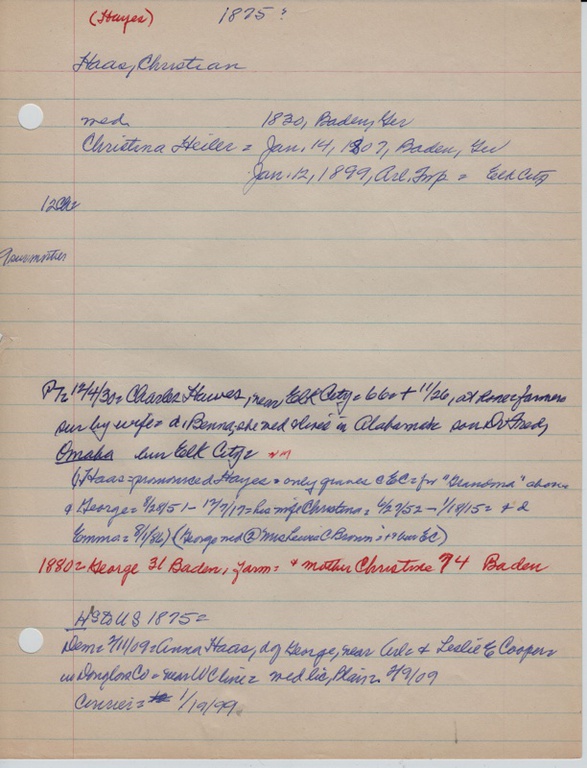 (Hayes) 1875?
Haas, Christian
med 1830, Baden, Ger
Christina Heiler = Jan. 14, 1807, Baden, Ger
Jan. 12, 1899, Arl. Twp = Elk City
12Ch
9 sur mother
12/4/30 = Charles Hawes, near Elk City = 66 + 11/26, at home = farmer
sur by wife + d, Benna, she wed + lives in Alabama + son Dr Fred,
Omaha bur Elk City =
Haas = pronounced Hayes = only graves c EC = for "Grandma" above
& George = 8/28/51 - 12/7/17 = his wife Christina = 6/27/52 - 1/18/15 = + d
Emma = (George wed @ Mrs Lewis C Brown = bur EC)
1880 = George 31 Baden, farm = + mother Christine 74 Baden
US 1875 =
Dem = 2/11/09 = Anna Haas, d of George, near Arl + Leslie E Cooper =
in Douglas Co = near W C line = wed lic, Blair = 2/9/09
Courier = 1/19/99